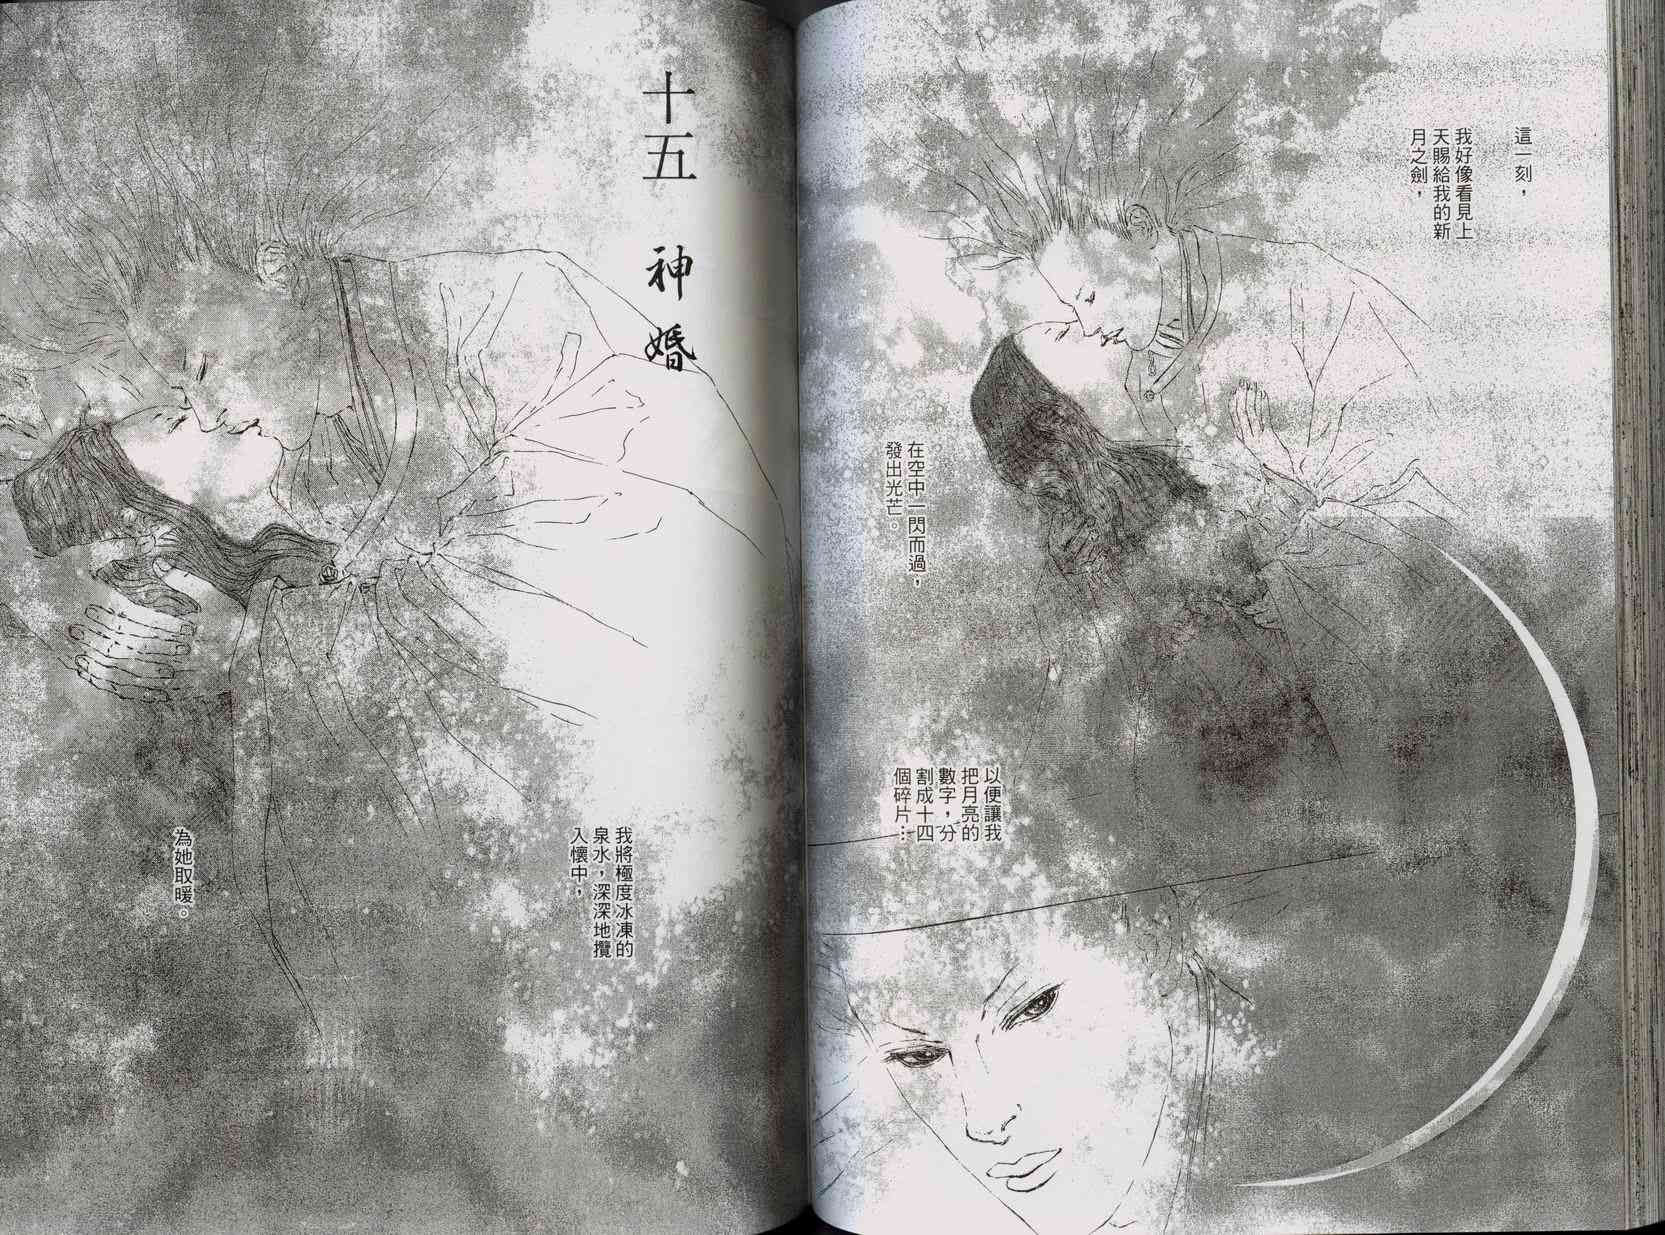 這一刻，
我好像看見上
天賜給我的新
月之劍，
在空中一閃而過，
發出光芒。
以便讓我
把月亮的
數字，分
割成十四
個碎片…
十五 神婚
我將極度冰凍的
泉水，深深地攬
入懷中，
為她取暖。